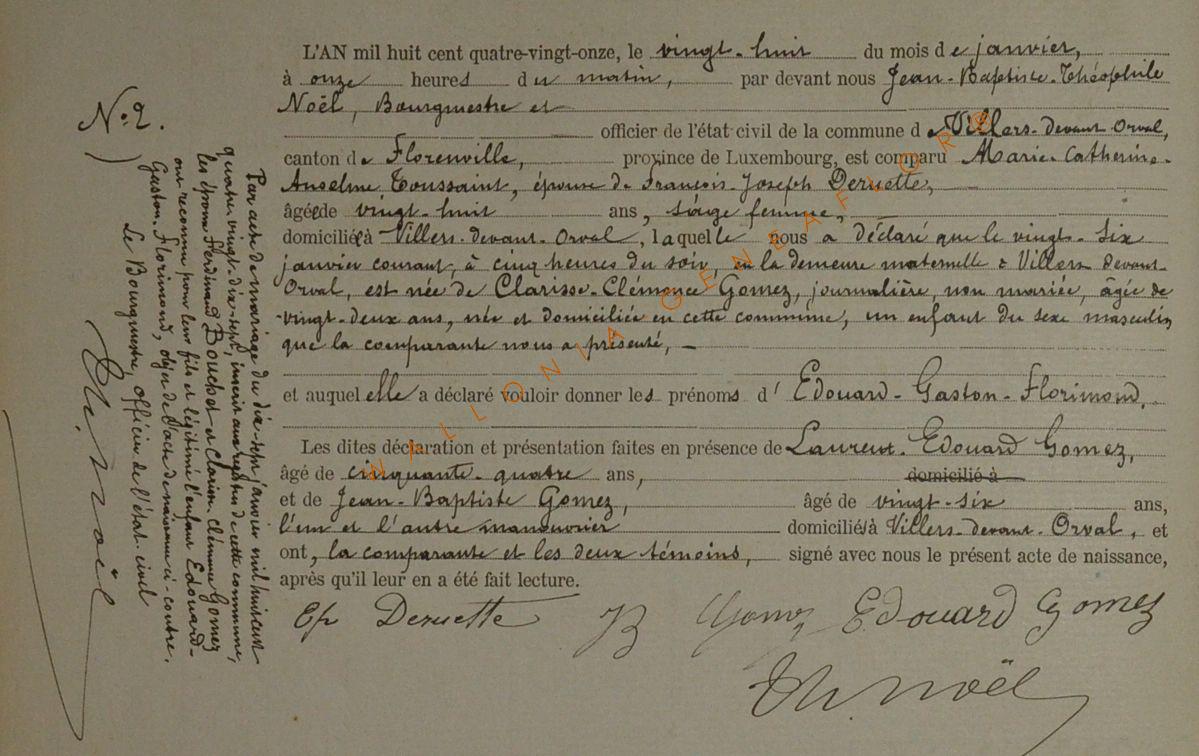 N.º 2.
Par acte de mariage du dix-sept janvier mil huit cent
quatre vingt-dix-sept, inscrit aux registres de cette commune,
les époux Ferdinand Bouchot et Clarisse-Clémence Gomez
ont reconnu pour leur fils et légitimé l'enfant Edouard-
Gaston-Florimond, objet de l'acte de naissance ci-contre.
Le Bourgmestre, officier de l'état-civil
Th. Noël
L'AN mil huit cent quatre-vingt-onze, le vingt-huit du mois de janvier,
à onze heures du matin, par devant nous Jean-Baptiste-Théophile
Noël, Bourgmestre et
officier de l'état civil de la commune de Villers-devant-Orval,
canton de Florenville, province de Luxembourg, est comparu Marie-Catherine-
Anselme Toussaint, épouse de François-Joseph Deruette,
âgée de vingt-huit ans, sage femme,
domiciliée à Villers-devant-Orval, laquelle nous a déclaré que le vingt-six
janvier courant, à cinq heures du soir, en la demeure maternelle à Villers-devant-
Orval, est née de Clarisse-Clémence Gomez, journalière, non mariée, âgée de
vingt-deux ans, née et domiciliée en cette commune, un enfant du sexe masculin
que la comparante nous a présenté,
et auquel elle a déclaré vouloir donner les prénoms d'Edouard-Gaston-Florimond.
Les dites déclaration et présentation faites en présence de Laurent-Edouard Gomez,
âgé de cinquante-quatre ans, domicilié à
et de Jean-Baptiste Gomez, âgé de vingt-six ans,
l'un et l'autre manouvrier domiciliés à Villers-devant-Orval, et
ont, la comparante et les deux témoins, signé avec nous le présent acte de naissance,
après qu'il leur en a été fait lecture.
Ep Deruette JB Gomez Edouard Gomez
Th. Noël
WALLONIA GENEAFLORE